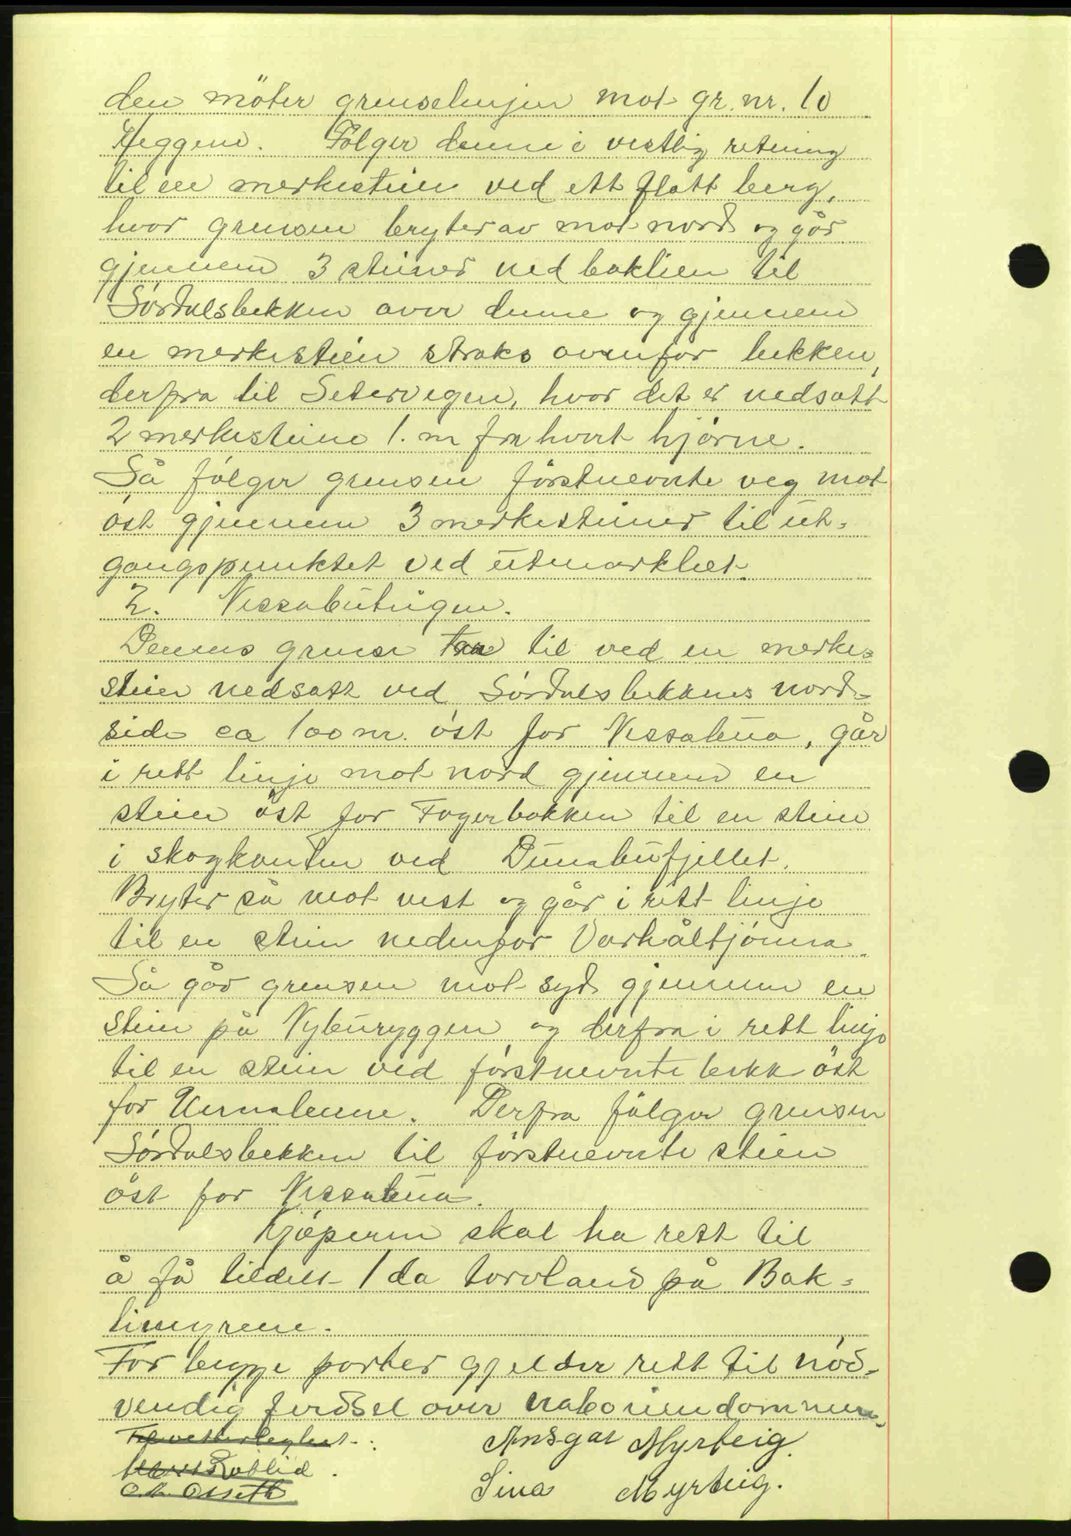 den möter grenselinjen mot gr. nr. 10
Heggem. Fölger denne i vestlig retning
til en merkestein ved ett flatt berg,
hvor grensen bryter av mot nord og går
gjennem 3 steiner ned baklien til
Sördalsbekken over denne og gjennem
en merkestein straks ovenfor bekken,
derfra til Setervegen, hvor det er nedsatt
2 merkesteine 1. m fra hvert hjörne.
Så fölger grensen förstnevnte veg mot
öst gjennem 3 merkesteiner til ut-
gangspunktet ved utmarkled.
2. Nessabuteigen.
Dennes grense tar til ved en merke-
stein nedsatt ved Sördalsbekkens nord-
side ca 100 m. öst for Nessabua, går
i rett linje mot nord gjennem en
stein öst for Fagerbakken til en stein
i skogkanten ved Dunabufjellet.
Bryter så mot vest og går i rett linje
til en stein nedenfor Vorhåltjönna
Så går grensen mot syd gjennem en
stein på Nyburyggen og derfra i rett linje
til en stein ved förstnevnte bekk öst
for. Derfra fölger grensen
Sördalsbekken til förstnevnte stein
öst for Nessabua.
Kjöperen skal ha rett til
å få tildelt 1 da torvland på Bak-
limyrene.
For begge parter gjelder rett til nöd-
vendig ferdsel over naboeiendommen.
Til vitterlighet: Ansgar Myrteig.
Lina Myrteig.